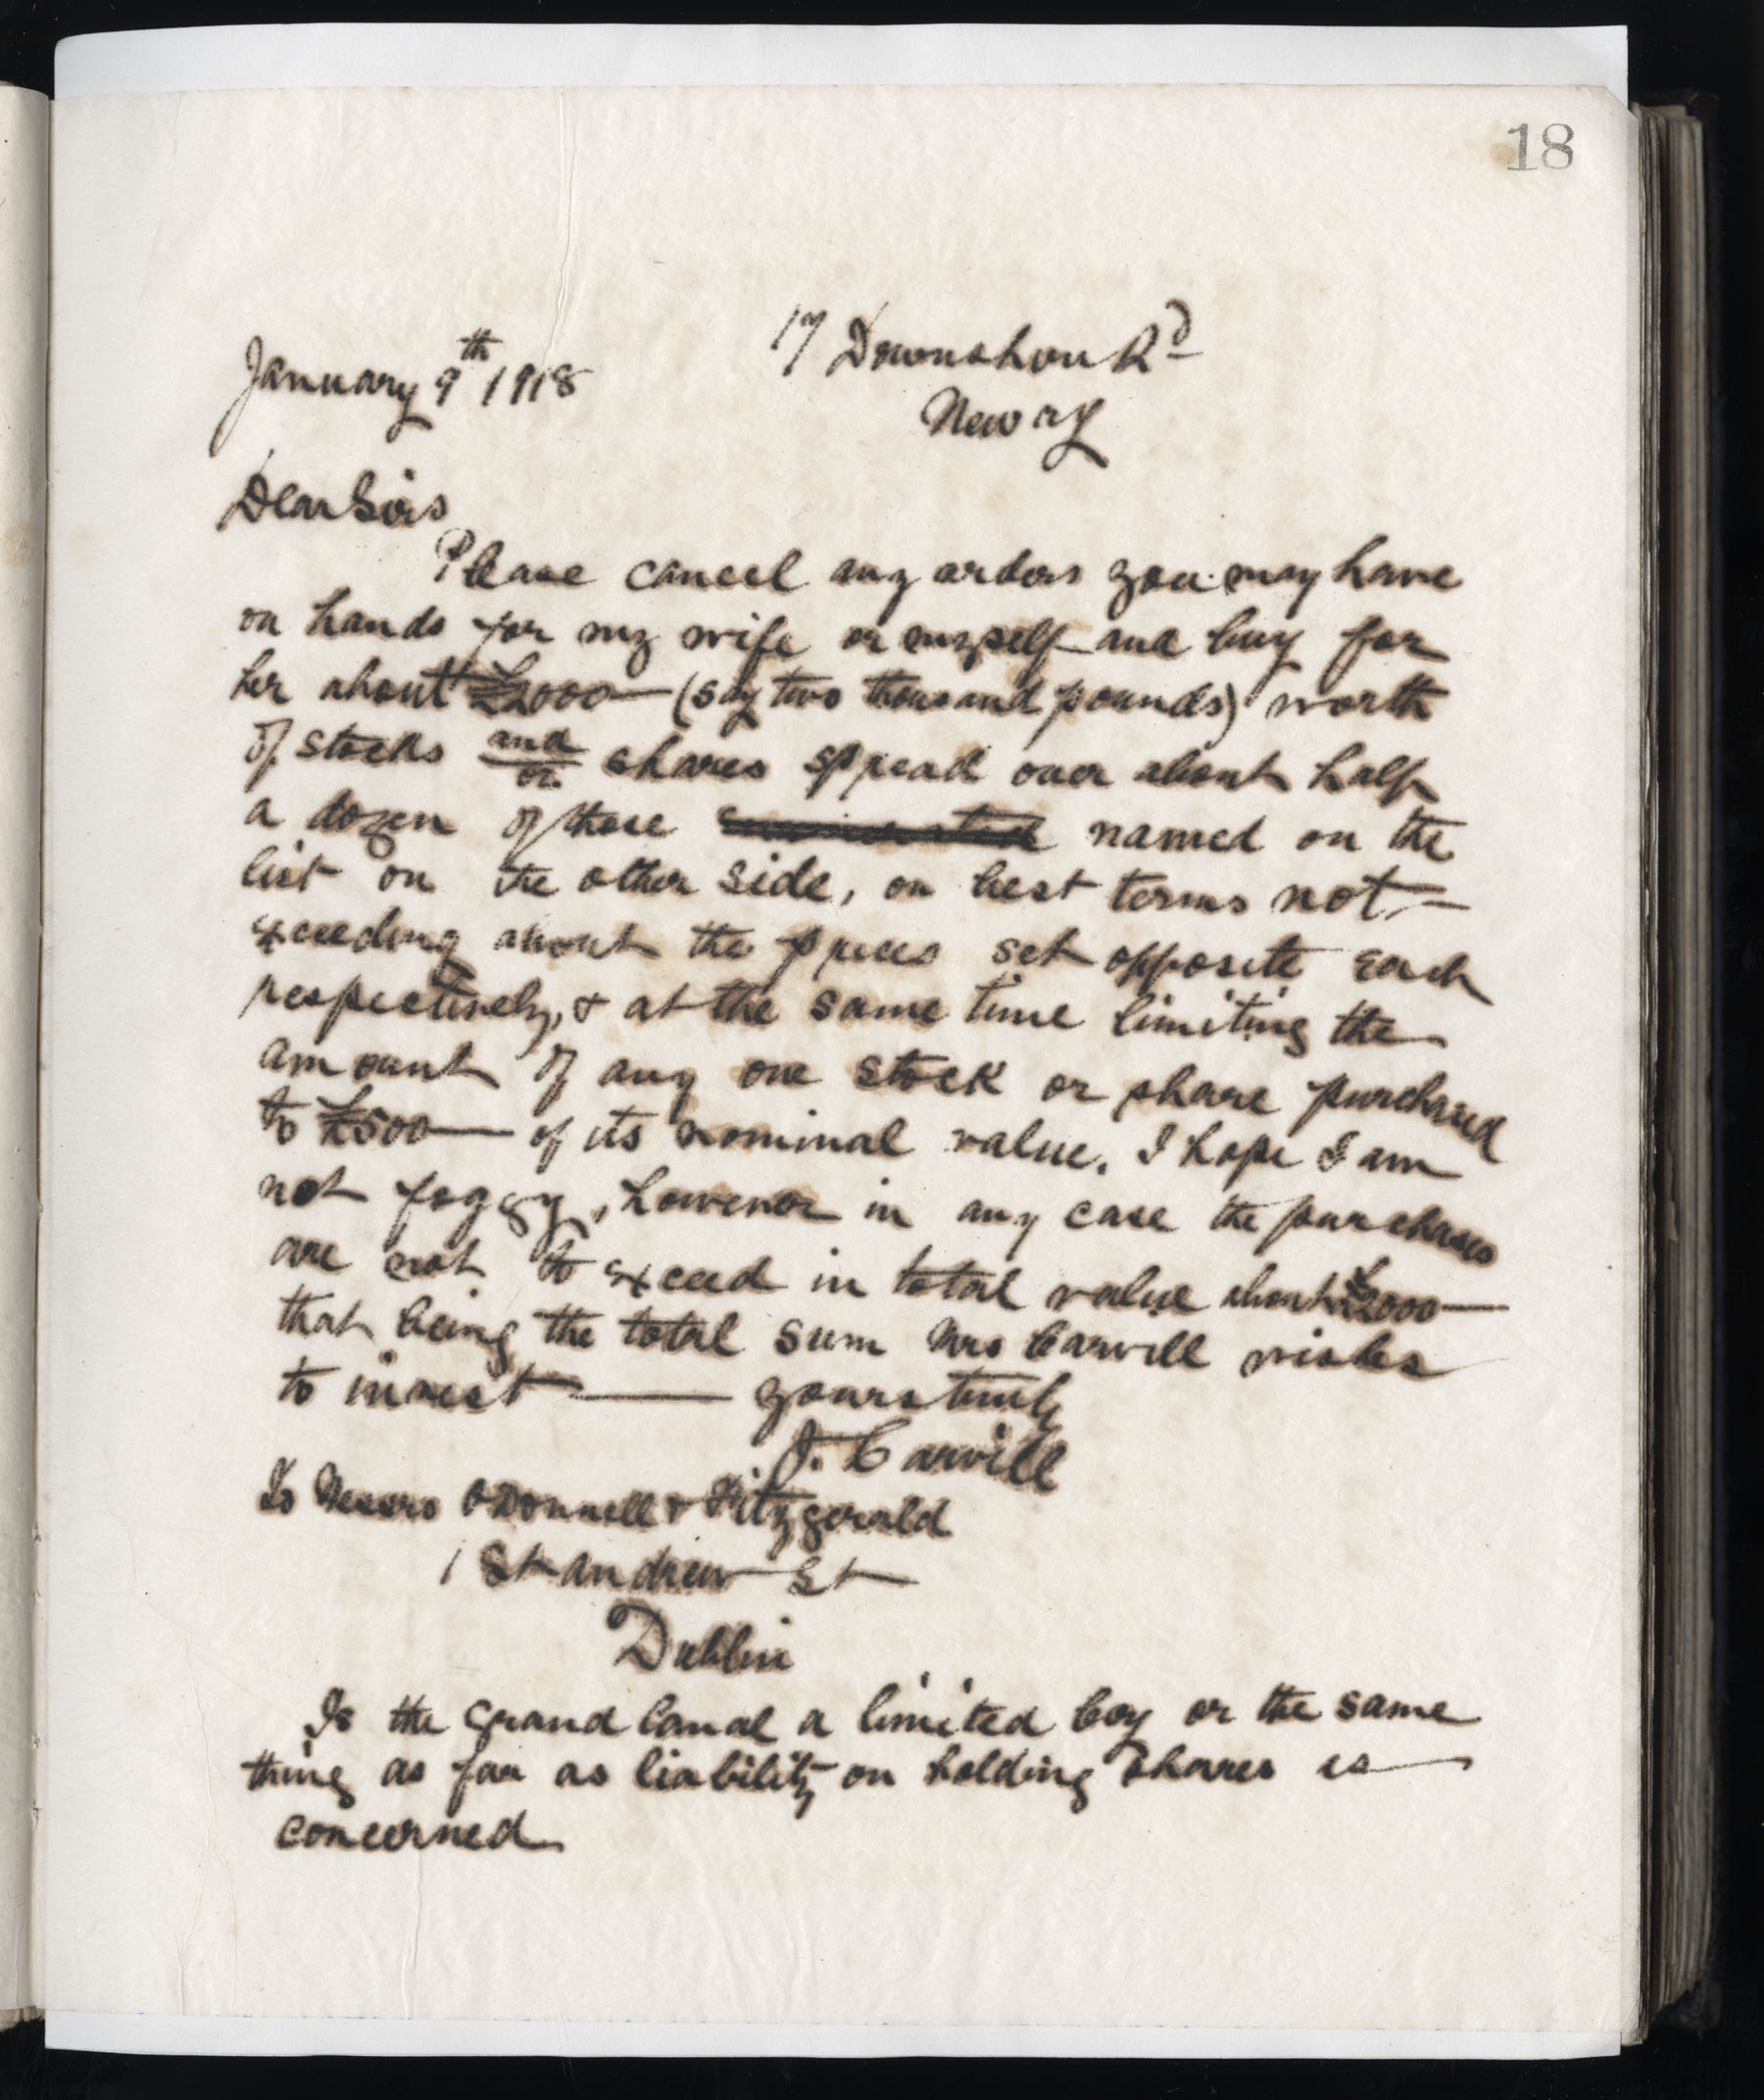 18
17 Downshire Rd
January 9th 1918
Newry
Dear Sirs
Please cancel any orders you may have
on hands for my wife or myself and buy for
her about £2000— (say two thousand pounds) worth
of stocks and/or shares spread over about half
a dozen of those named on the
list on the other side, on best terms not—
exceeding about the prices set opposite each
respectively, & at the same time limiting the
amount of any one stock or share purchased
to £500— of its nominal value. I hope I am
not foggy, however in any case the purchases
are not to exceed in total value about £2000—
that being the total sum Mrs Carvill wishes
to invest —— yours truly
J. Carvill
To Messrs O'Donnell & Fitzgerald
1 St Andrew St
Dublin
Is the Grand Canal a limited Coy or the same
thing as far as liability on holding shares is—
concerned